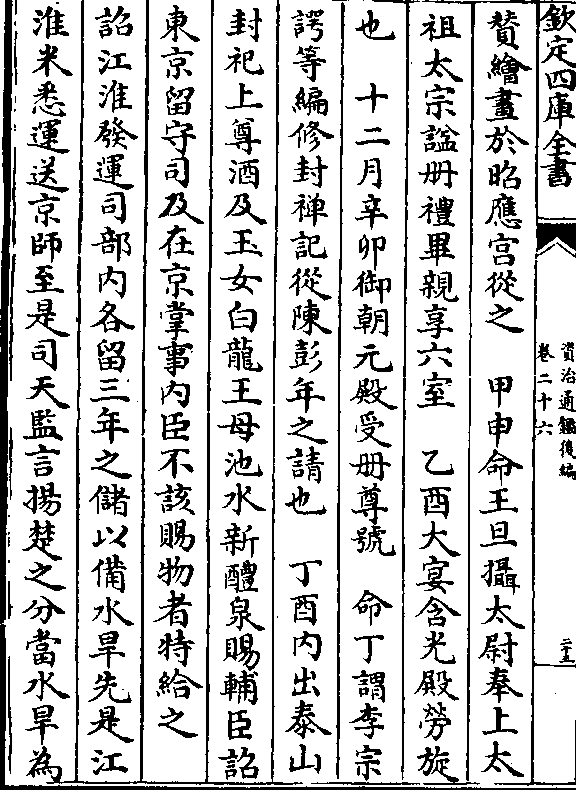 欽定四庫全書
資治通鑑後編
卷二十六
二十五
賛繪畫於昭應宫從之　甲申命王旦攝太尉奉上太
祖太宗諡册禮畢親享六室　乙酉大宴含光殿勞旋
也　十二月辛卯御朝元殿受册尊號　命丁謂李宗
諤等編修封禅記從陳彭年之請也　丁酉内出泰山
封祀上尊酒及玉女白龍王母池水新醴泉賜輔臣詔
東京留守司及在京掌事内臣不該賜物者特給之
詔江淮發運司部内各留三年之儲以備水旱先是江
淮米悉運送京師至是司天監言揚楚之分當水旱為